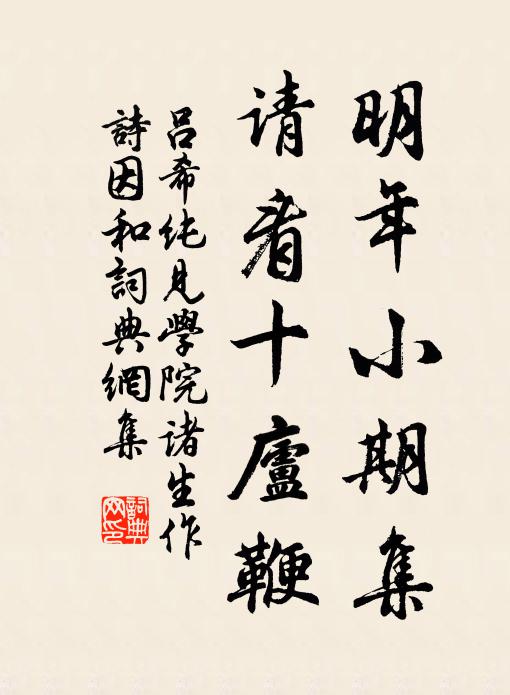 明年小期集
请看十廬鞭
吕希纯見學院诸生作
詩因和詞典網集
詞典
网印